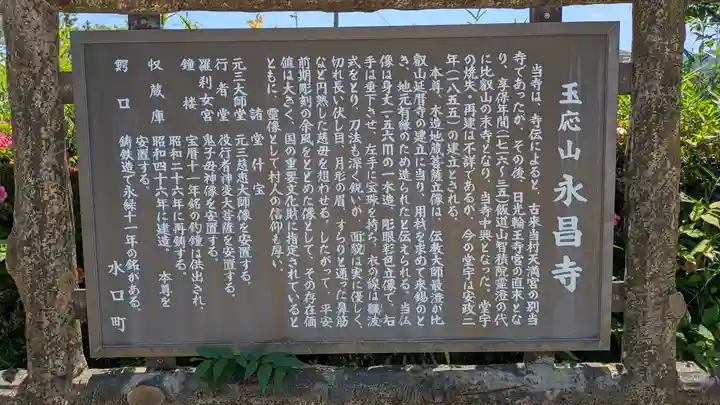 玉応山永昌寺
当寺は、寺伝によると、古来当村天満宮の別当
寺であったが、その後、日光輪王寺宮の直末とな
り、享保年間(一七一六〜三五)飯道山智積院霊澄の代
に比叡山の末寺となり、当寺中興となった。堂宇
の焼失・再建は不詳であるが、今の堂宇は安政二
年(一八五五)の建立とされる。
本尊、木造地蔵菩薩立像は、伝教大師最澄が比
叡山延暦寺の建立に当り、用料を求めて来錫のと
き、地元有縁のため造られたと伝えられる。当仏
像は身丈一・五六mの一木造、彫眼彩色立像で、右
手は垂下させ、左手に宝珠を持ち、衣の線は飜波
式をとり、刀法も深く鋭いが、面貌は実に優しく、
切れ長い伏し目、月形の眉、すらりと通った鼻筋
など円熟した趣歴を想わせる。したがって、平安
前期彫刻の余風をとどめた像として、その存在価
値は大きく、国の重要文化財に指定されていると
ともに、霊像として村人の信仰も厚い。
諸堂什宝
元三大師堂 元三慈恵大師像を安置する。
行者堂 役行者神変大菩薩を安置する。
羅刹女宮 鬼子母神像を安置する。
鐘楼 宝暦十一年銘の釣鐘は供出され、
昭和二十六年に再鋳する。
収蔵庫 昭和四十六年に建造、本尊を
安置する。
鰐口 鋳鉄造で永禄十一年の銘がある。
水口町